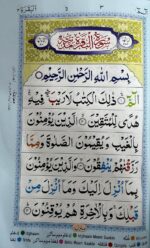 سُوْرَةُ الْبَقَرَةِ مَدَنِيَّةٌ
بِسْمِ اللّٰهِ الرَّحْمٰنِ الرَّحِيْمِ
الٓمّٓ ۚ ذٰلِكَ الْكِتٰبُ لَا رَيْبَ ۛ فِيْهِ ۛ
هُدًى لِّلْمُتَّقِيْنَ ۙ الَّذِيْنَ يُؤْمِنُوْنَ
بِالْغَيْبِ وَيُقِيْمُوْنَ الصَّلٰوةَ وَمِمَّا
رَزَقْنٰهُمْ يُنْفِقُوْنَ ۙ وَالَّذِيْنَ يُؤْمِنُوْنَ
بِمَآ اُنْزِلَ اِلَيْكَ وَمَآ اُنْزِلَ مِنْ
قَبْلِكَ ۚ وَبِالْاٰخِرَةِ هُمْ يُوْقِنُوْنَ